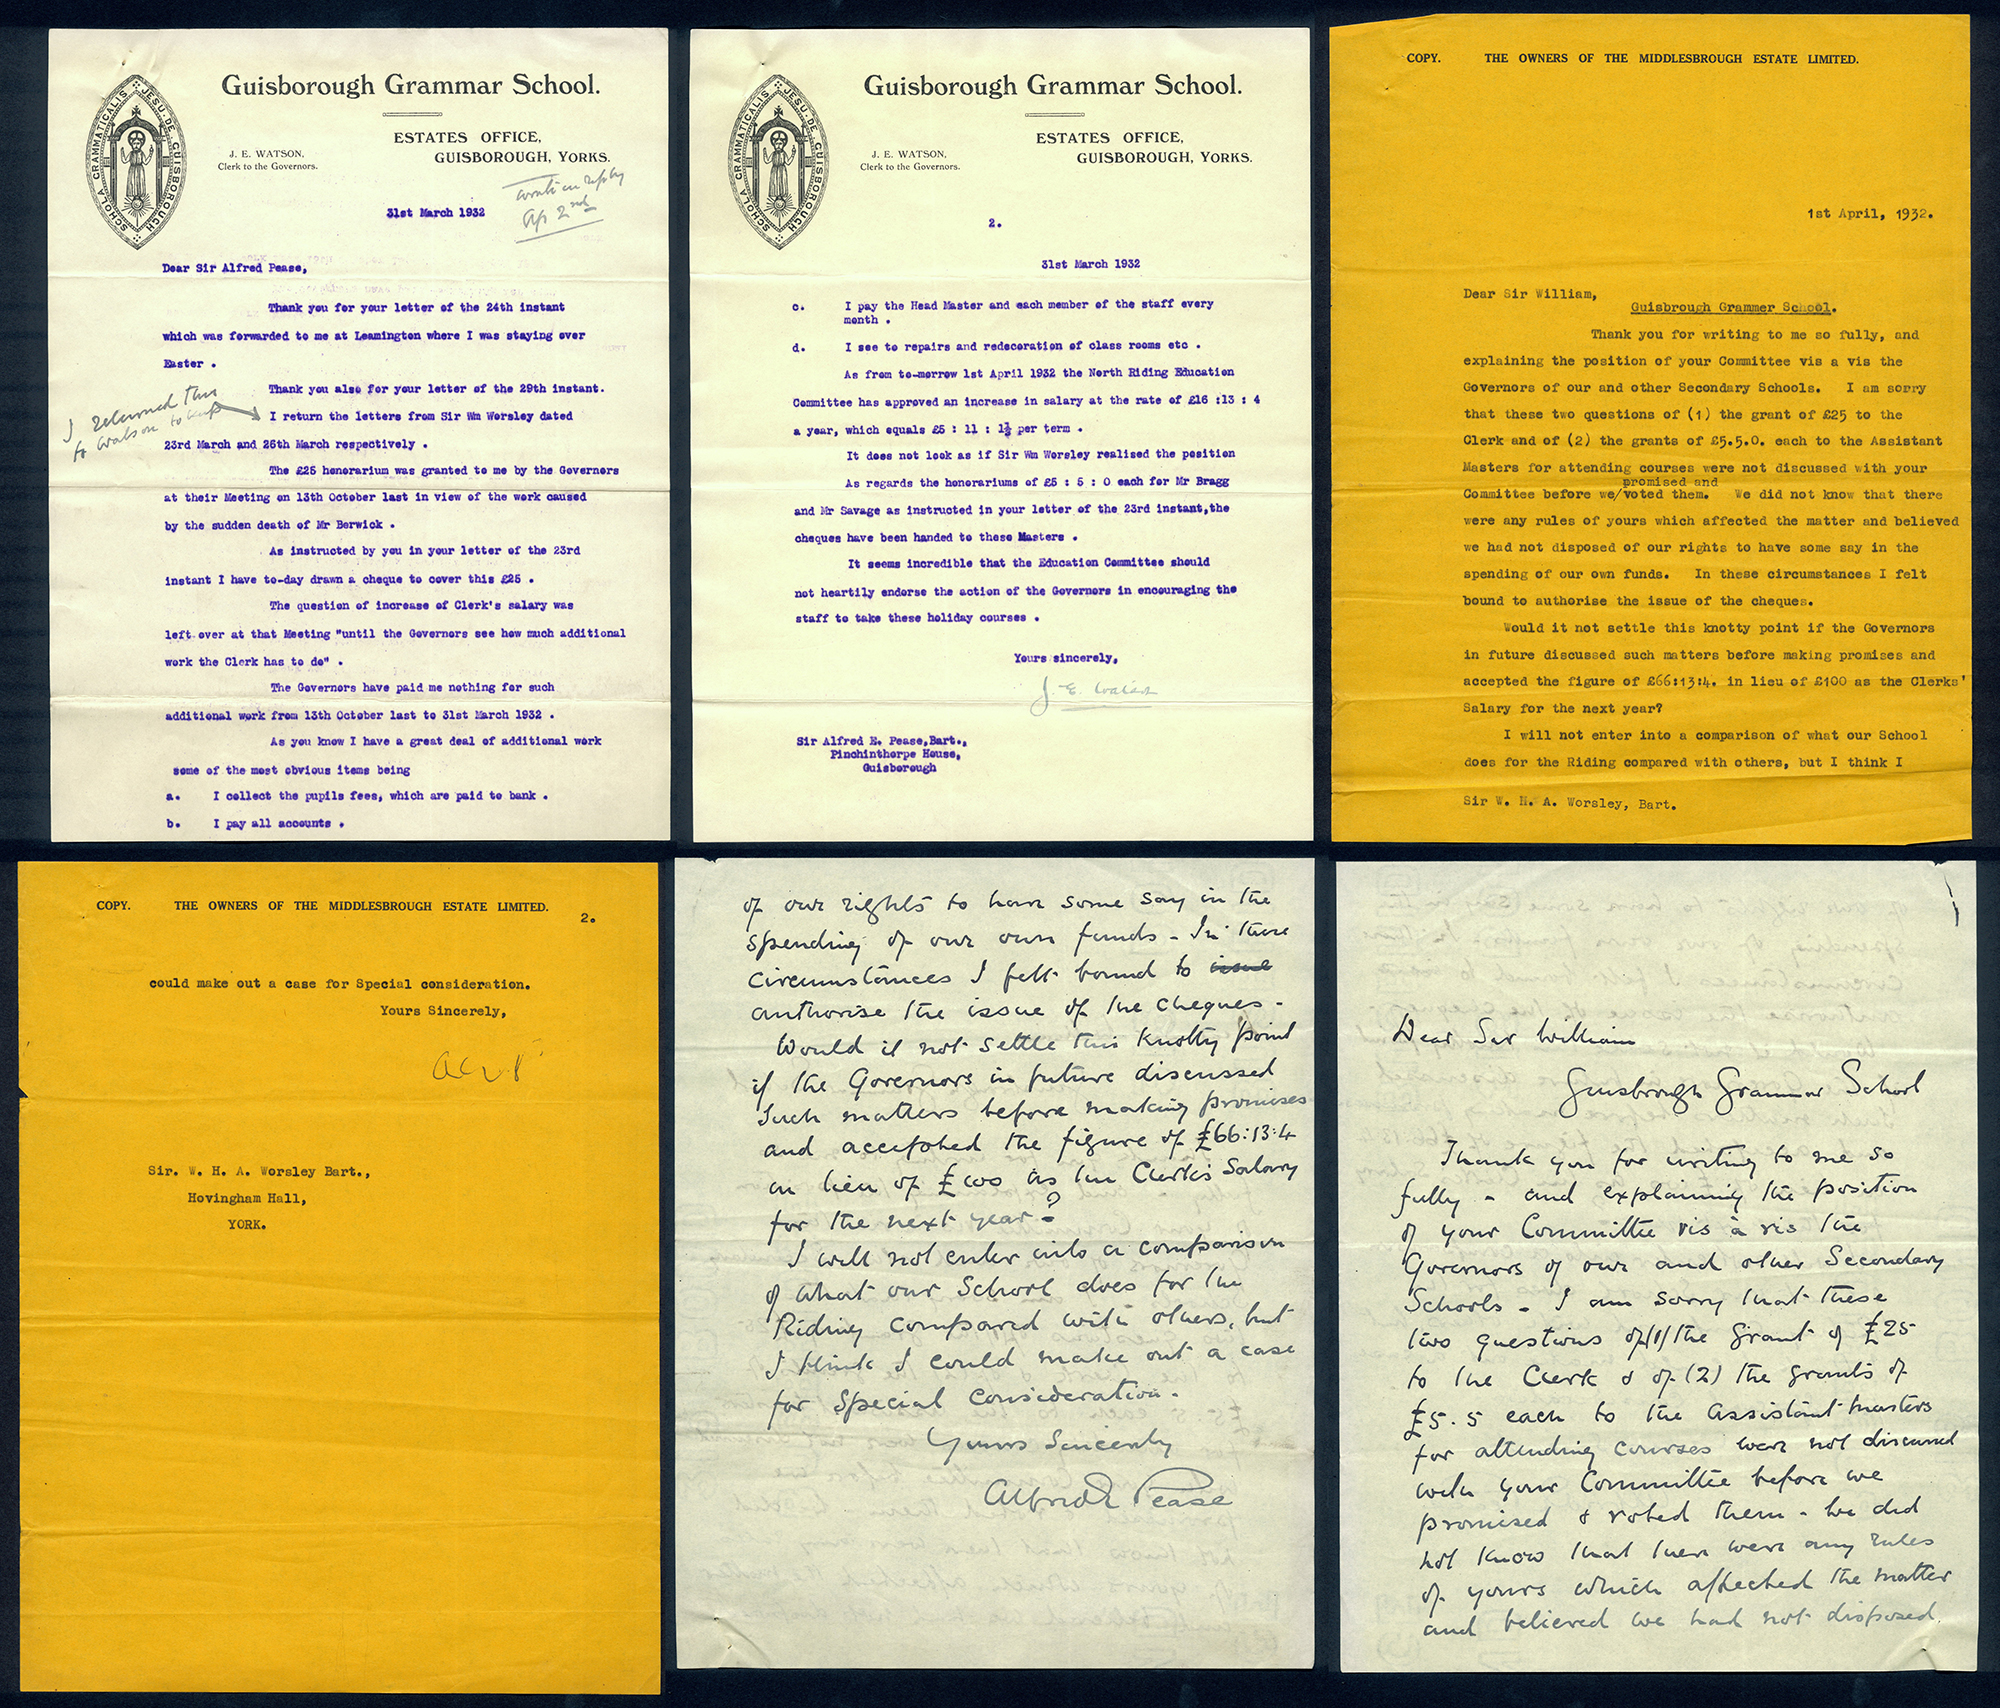 Guisborough Grammar School.
SCHOLA GRAMMATICALIS JESU DE GUISBOROUGH
ESTATES OFFICE,
GUISBOROUGH, YORKS.
J. E. WATSON,
Clerk to the Governors.
in reply
Ap 2nd
31st March 1932
Dear Sir Alfred Pease,
Thank you for your letter of the 24th instant
which was forwarded to me at Leamington where I was staying over
Easter .
Thank you also for your letter of the 29th instant.
I returned this
to Watson to keep
I return the letters from Sir Wm Worsley dated
23rd March and 26th March respectively .
The £25 honorarium was granted to me by the Governors
at their Meeting on 13th October last in view of the work caused
by the sudden death of Mr Berwick .
As instructed by you in your letter of the 23rd
instant I have to-day drawn a cheque to cover this £25 .
The question of increase of Clerk's salary was
left over at that Meeting "until the Governors see how much additional
work the Clerk has to do" .
The Governors have paid me nothing for such
additional work from 13th October last to 31st March 1932 .
As you know I have a great deal of additional work
some of the most obvious items being
a. I collect the pupils fees, which are paid to bank .
b. I pay all accounts .
Guisborough Grammar School.
SCHOLA GRAMMATICALIS JESU DE GUISBOROUGH
ESTATES OFFICE,
GUISBOROUGH, YORKS.
J. E. WATSON,
Clerk to the Governors.
2.
31st March 1932
c. I pay the Head Master and each member of the staff every
month .
d. I see to repairs and redecoration of class rooms etc .
As from to-morrow 1st April 1932 the North Riding Education
Committee has approved an increase in salary at the rate of £16 :13 : 4
a year, which equals £5 : 11 : 1½ per term .
It does not look as if Sir Wm Worsley realised the position
As regards the honorariums of £5 : 5 : 0 each for Mr Bragg
and Mr Savage as instructed in your letter of the 23rd instant,the
cheques have been handed to these Masters .
It seems incredible that the Education Committee should
not heartily endorse the action of the Governors in encouraging the
staff to take these holiday courses .
Yours sincerely,
J. E. Watson
Sir Alfred E. Pease,Bart.,
Pinchinthorpe House,
Guisborough
COPY. THE OWNERS OF THE MIDDLESBROUGH ESTATE LIMITED.
1st April, 1932.
Dear Sir William,
Guisbrough Grammer School.
Thank you for writing to me so fully, and
explaining the position of your Committee vis a vis the
Governors of our and other Secondary Schools. I am sorry
that these two questions of (1) the grant of £25 to the
Clerk and of (2) the grants of £5.5.0. each to the Assistant
Masters for attending courses were not discussed with your
promised and
Committee before we/voted them. We did not know that there
were any rules of yours which affected the matter and believed
we had not disposed of our rights to have some say in the
spending of our own funds. In these circumstances I felt
bound to authorise the issue of the cheques.
Would it not settle this knotty point if the Governors
in future discussed such matters before making promises and
accepted the figure of £66:13:4. in lieu of £100 as the Clerks'
Salary for the next year?
I will not enter into a comparison of what our School
does for the Riding compared with others, but I think I
Sir W. H. A. Worsley, Bart.
COPY. THE OWNERS OF THE MIDDLESBROUGH ESTATE LIMITED.
2.
could make out a case for Special consideration.
Yours Sincerely,
Sir. W. H. A. Worsley Bart.,
Hovingham Hall,
YORK.
of our rights to have some say in the
spending of our own funds - In these
circumstances I felt bound to issue
authorise the issue of the cheques -
Would it not settle this knotty point
if the Governors in future discussed
such matters before making promises
and accepted the figure of £66:13:4
in lieu of £100 as the Clerk's Salary
for the next year?
I will not enter into a comparison
of what our School does for the
Riding compared with others, but
I think I could make out a case
for Special Consideration -
Yours Sincerely
Alfred E Pease
Dear Sir William
Guisbrough Grammar School
Thank you for writing to me so
fully - and explaining the position
of your Committee vis à vis the
Governors of our and other Secondary
Schools - I am sorry that these
two questions of (1) the grant of £25
to the Clerk & of (2) the grants of
£5.5 each to the Assistant Masters
for attending courses were not discussed
with your Committee before we
promised & voted them - We did
not know that there were any rules
of yours which affected the matter
and believed we had not disposed